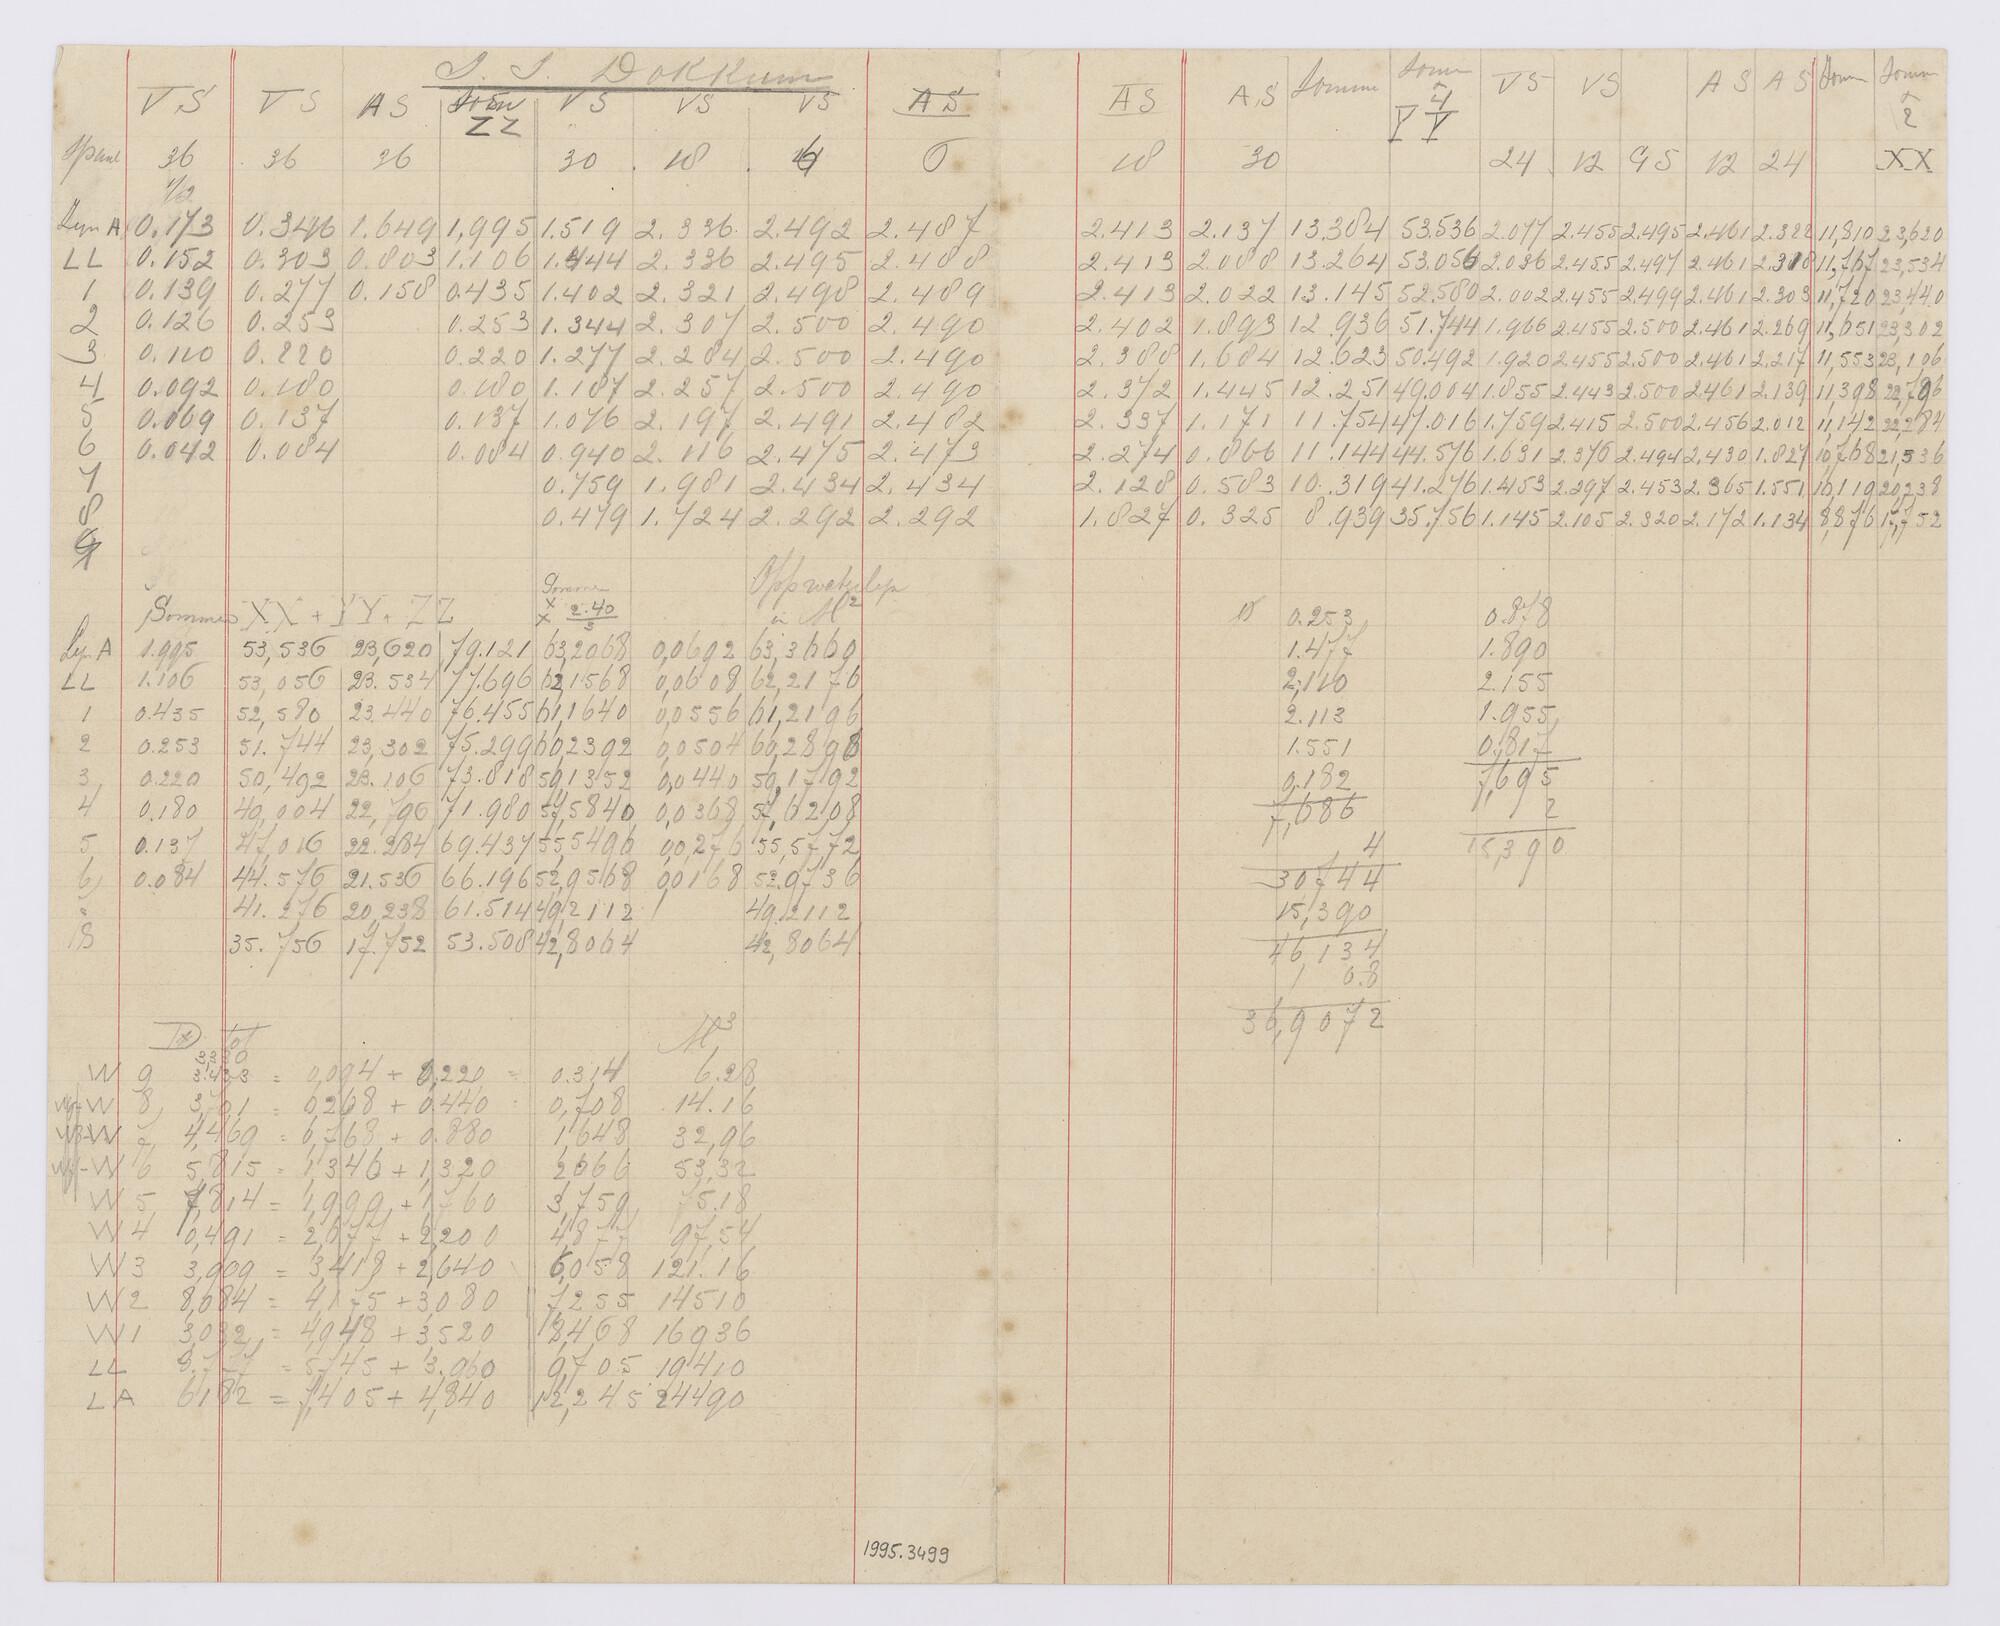 S. S. Dokkum
VS VS AS Som ZZ VS VS VS AS AS A.S Somme Somm 4 YY VS VS AS AS Somm Somm 2
36 36 36 30 18 6 6 18 30 24 12 GS 12 24 XX
1/2
Lyn A 0.173 0.346 1.649 1,995 1.519 2.336 2.492 2.487 2.413 2.137 13.384 53.536 2.077 2.455 2.495 2.461 2.322 11,810 23,620
LL 0.152 0.303 0.803 1.106 1.444 2.336 2.495 2.488 2.413 2.088 13.264 53.056 2.036 2.455 2.497 2.461 2.318 11,767 23,534
1 0.139 0.277 0.158 0.435 1.402 2.321 2.498 2.489 2.413 2.022 13.145 52.580 2.002 2.455 2.499 2.461 2.303 11,720 23,440
2 0.126 0.253 0.253 1.344 2.307 2.500 2.490 2.402 1.893 12.936 51.744 1.966 2.455 2.500 2.461 2.269 11,651 23,302
3 0.110 0.220 0.220 1.277 2.284 2.500 2.490 2.388 1.684 12.623 50.492 1.920 2.455 2.500 2.461 2.217 11,553 23,106
4 0.092 0.180 0.180 1.187 2.257 2.500 2.490 2.372 1.445 12.251 49.004 1.855 2.443 2.500 2.461 2.139 11,398 22,796
5 0.069 0.137 0.137 1.076 2.197 2.491 2.482 2.337 1.171 11.754 47.016 1.759 2.415 2.500 2.456 2.012 11,142 22,284
6 0.042 0.084 0.084 0.940 2.116 2.475 2.473 2.274 0.866 11.144 44.576 1.631 2.376 2.494 2.430 1.827 10,768 21,536
7 0.759 1.981 2.434 2.434 2.128 0.583 10.319 41.276 1.453 2.297 2.453 2.365 1.551 10,119 20,238
8 0.479 1.724 2.292 2.292 1.827 0.325 8.939 35.756 1.145 2.105 2.320 2.172 1.134 8,876 17,752
9
Sommes XX + YY + ZZ Somme x x 2.40/3 Opp waterlyn in M2
Lyn A 1.995 53,536 23,620 79.121 63,2968 0,0692 63,3660
LL 1.106 53,056 23.534 77.696 62,1568 0,0608 62,2176
1 0.435 52,580 23.440 76.455 61,1640 0,0556 61,2196
2 0.253 51.744 23,302 75.299 60,2392 0,0504 60,2898
3 0.220 50,492 23.106 73.818 59,1352 0,0440 59,1792
4 0.180 49,004 22,796 71.980 57,5840 0,0368 57,6208
5 0.137 47,016 22.284 69.437 55,5496 0,0276 55,5772
6 0.084 44.576 21.536 66.196 52,9568 0,0168 52.9736
41.276 20,238 61.514 49,2112 49,2112
8 35.756 17.752 53.508 42,8064 42,8064
0.253 0.878
1.477 1.890
2,110 2.155
2.113 1.955
1.551 0,817
0,182 7,695
7,686 2
4 15,390
30744
15,390
46,134
1 0.8
36,9072
D tot M3
3,330
W 9 3.433 = 0,094 + 0,220 = 0.314 6.28
W 8 3,701 = 0,268 + 0.440 0,708 14.16
W 7 4,469 = 0,768 + 0.880 1,648 32,96
W 6 5,815 = 1,346 + 1,320 2,666 53,32
W 5 7,814 = 1,999 + 1,760 3,759 75.18
W 4 0,491 = 2,677 + 2,200 4,877 97,54
W 3 3,909 = 3,418 + 2,640 6,058 121.16
W 2 8,084 = 4,175 + 3,080 7,255 14510
W 1 3,032 = 4,948 + 3,520 8,468 16936
LL 8,777 = 5,745 + 3.960 9,705 19410
LA 6,182 = 7,405 + 4,840 12,245 24490
1995.3499